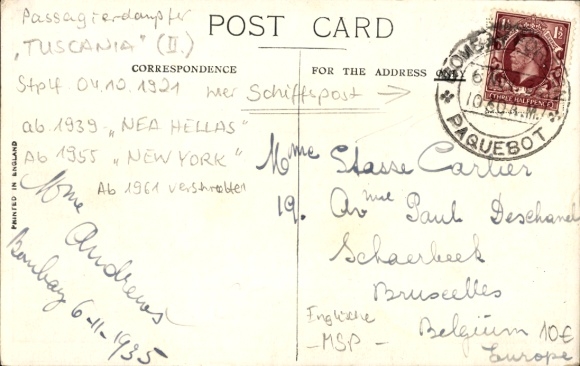 Passagierdampfer
„TUSCANIA" (II.)
POST CARD
CORRESPONDENCE
FOR THE ADDRESS ONLY
Stplf 04.10.1921
hier Schiffspost →
ab 1939 „NEA HELLAS"
Ab 1955 „NEW YORK"
Ab 1961 verschrottet
PRINTED IN ENGLAND
Mme Andrews
Bombay 6-11-1935
1½
1½
THREE HALFPENCE
BOMBAY
10 30 A.M.
PAQUEBOT
Mme Stasse Carlier
19. Avnue Paul Deschanel
Schaerbeek
Bruxelles
Belgium
Europe
Englische
-MSP-
10€